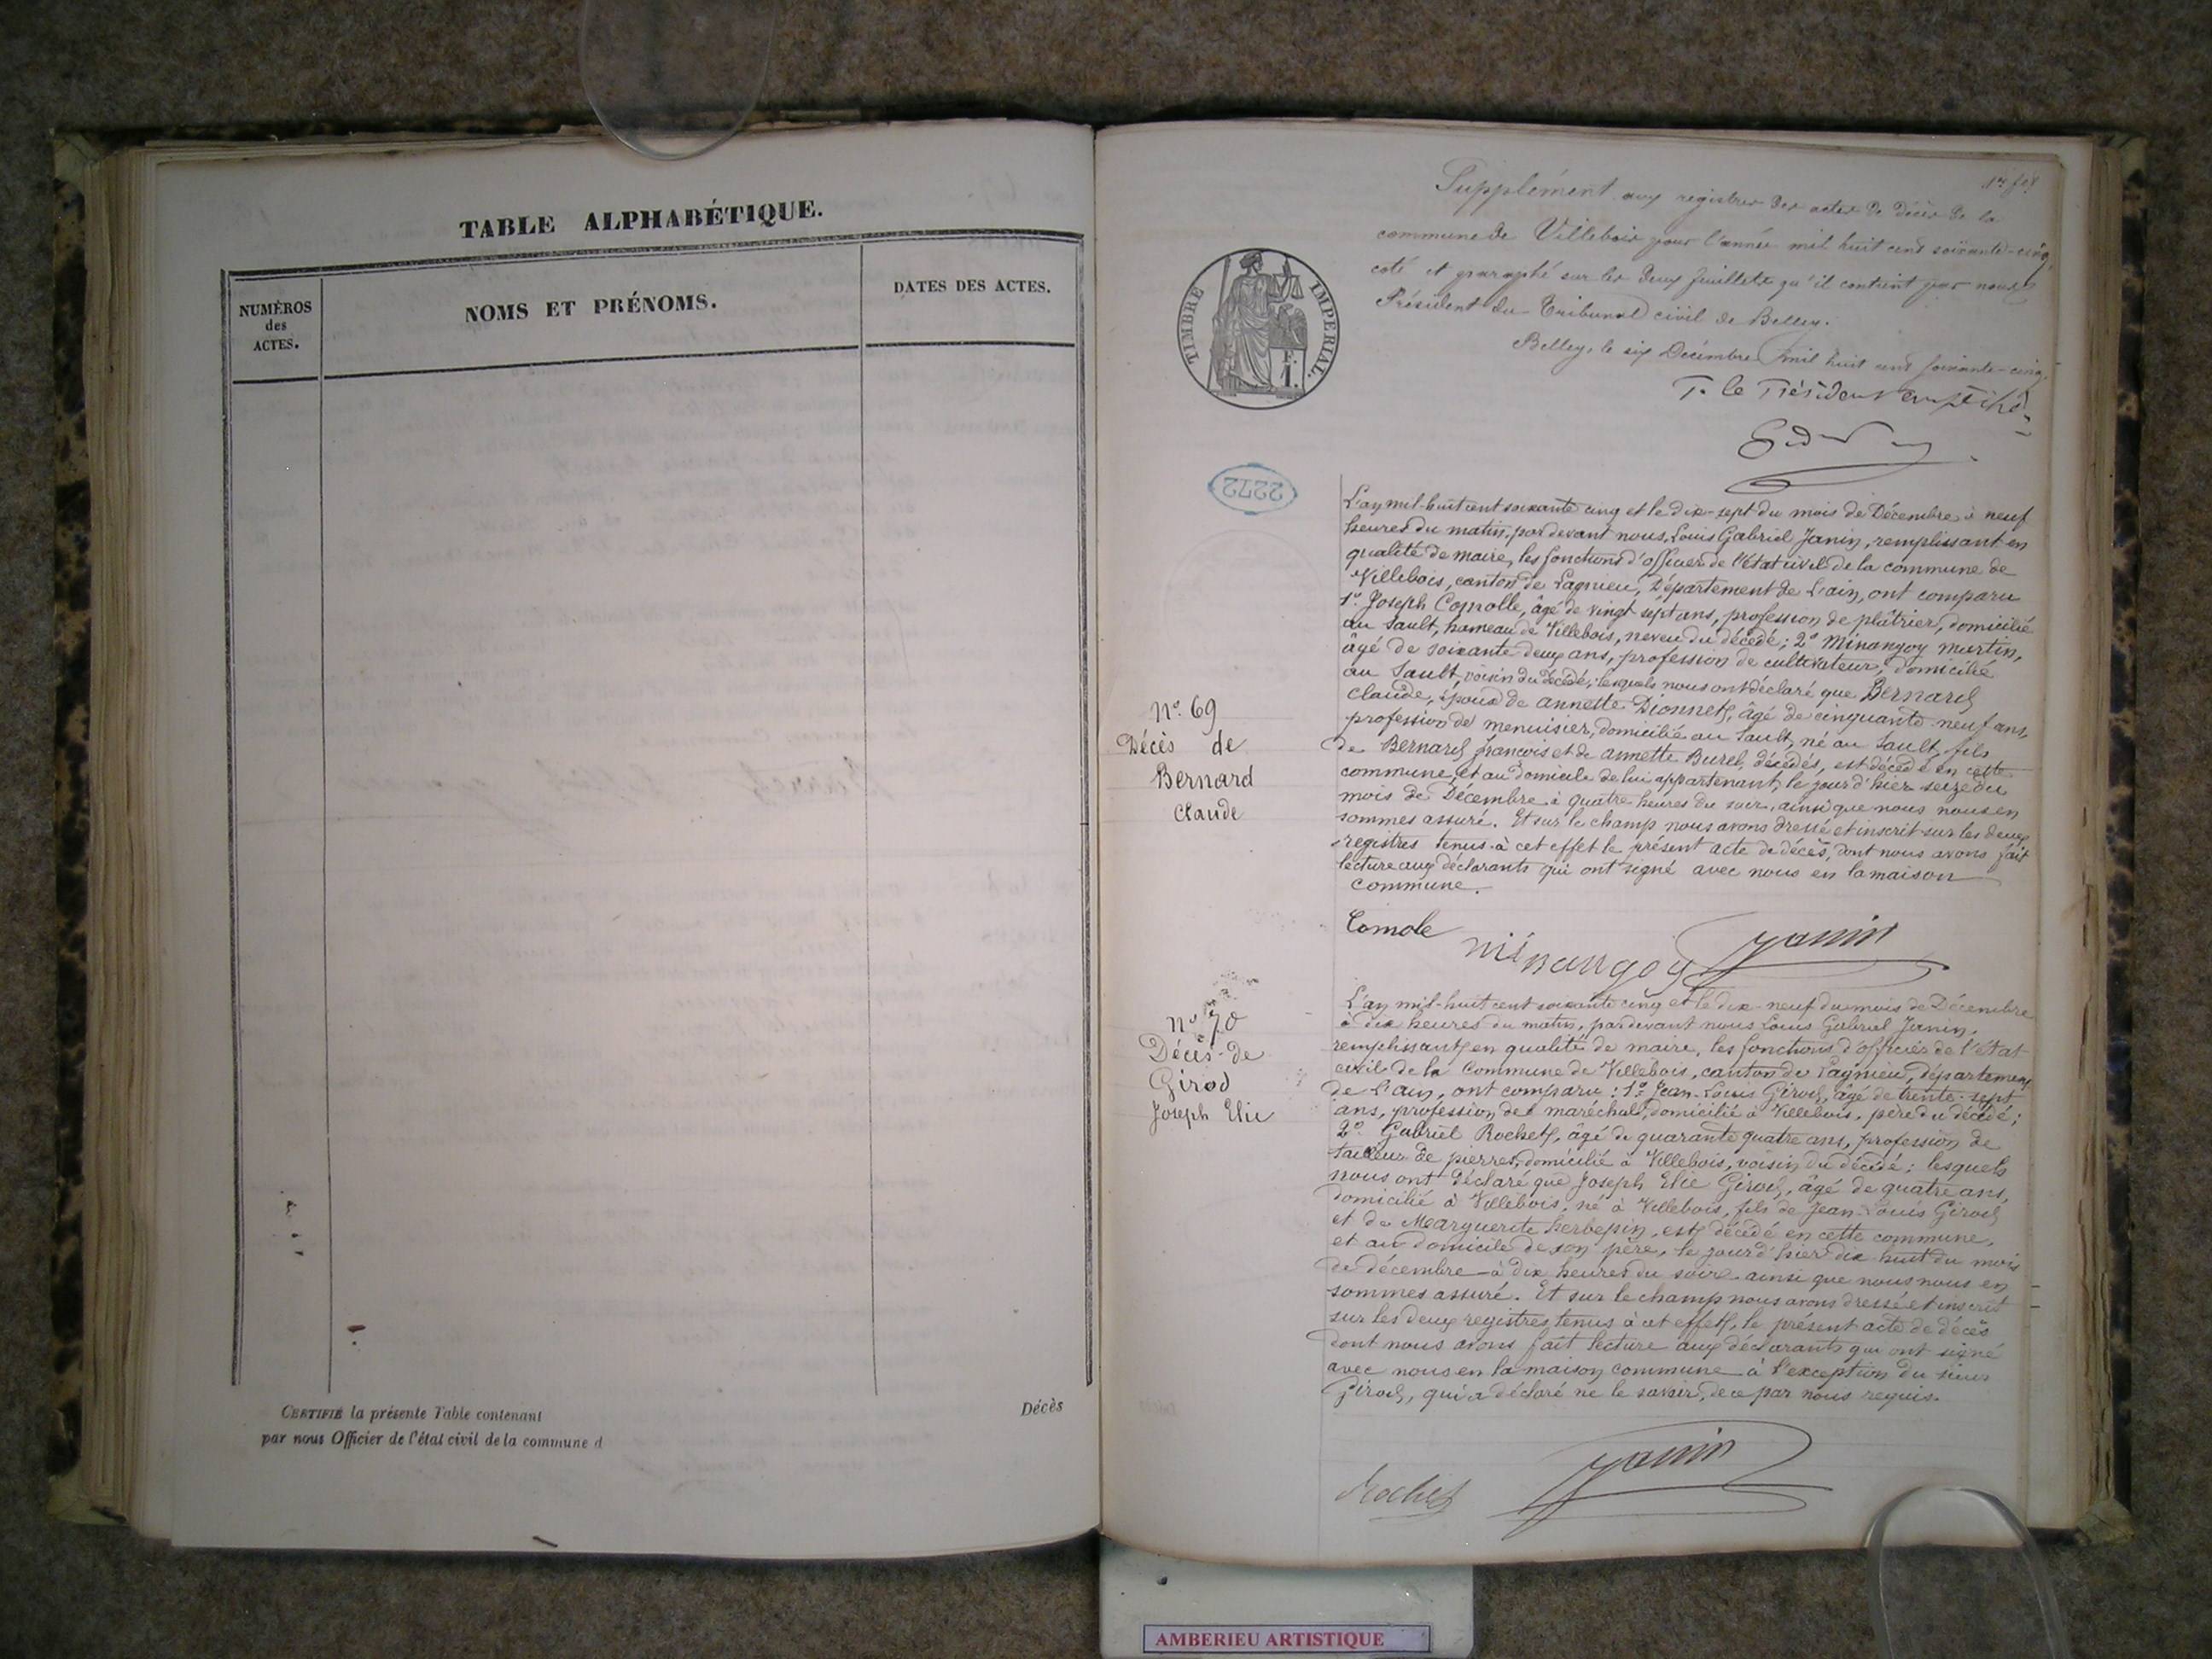 TABLE ALPHABÉTIQUE.
NUMÉROS
des
ACTES.
NOMS ET PRÉNOMS.
DATES DES ACTES.
CERTIFIÉ la présente Table contenant
par nous Officier de l'état civil de la commune d
Décès
Supplément aux registres des actes de décès de la
commune de Villebois pour l'année mil huit cent soixante-cinq,
coté et paraphé sur les deux feuillets qu'il contient par nous
Président du Tribunal civil de Belley.
Belley, le six Décembre mil huit cent soixante-cinq
le Président
TIMBRE IMPERIAL.
F.
1.
2272
L'an mil-huit cent soixante cinq et le dix-sept du mois de Décembre à neuf
heures du matin, par devant nous, Louis Gabriel Janin, remplissant en
qualité de maire, les fonctions d'officier de l'état civil de la commune de
Villebois, canton de Lagnieu, Département de L'ain, ont comparu
1º Joseph, âgé de vingt sept ans, profession de plâtrier, domicilié
au Sault, hameau de Villebois, neveu du décédé; 2º Minangoy martin,
âgé de soixante deux ans, profession de cultivateur, domicilié
au Sault, voisin du décédé; lesquels nous ont déclaré que Bernard
Claude, époux de annette Dionnet, âgé de cinquante neuf ans,
profession de menuisier, domicilié au Sault, né au Sault, fils
de Bernard françois et de annette Buret, décédés, est décédé en cette
commune, et au domicile de lui appartenant, le jour d'hier seize du
mois de Décembre à quatre heures du soir, ainsi que nous nous en
sommes assuré. Et sur le champ nous avons dressé et inscrit sur les deux
registres tenus à cet effet le présent acte de décès, dont nous avons fait
lecture aux déclarants qui ont signé avec nous en la maison
commune.
Nº 69
Décès de
Bernard
Claude
Comole
minangoy
Janin
L'an mil-huit cent soixante cinq et le dix-neuf du mois de Décembre
à dix heures du matin, par devant nous Louis Gabriel Janin,
remplissant en qualité de maire, les fonctions d'officier de l'état
civil de la Commune de Villebois, canton de Lagnieu, département
de L'ain, ont comparu: 1º Jean-Louis Girod, âgé de trente-sept
ans, profession de maréchal, domicilié à Villebois, père du décédé;
2º Gabriel Rochet, âgé de quarante quatre ans, profession de
tailleur de pierres, domicilié à Villebois, voisin du décédé; lesquels
nous ont déclaré que Joseph Elie Girod, âgé de quatre ans,
domicilié à Villebois, né à Villebois, fils de Jean-Louis Girod
et de Marguerite herbepin, est décédé en cette commune,
et au domicile de son père, le jour d'hier dix huit du mois
de décembre à dix heures du soir ainsi que nous nous en
sommes assuré. Et sur le champ nous avons dressé et inscrit
sur les deux registres tenus à cet effet, le présent acte de décès
dont nous avons fait lecture aux déclarants qui ont signé
avec nous en la maison commune à l'exception du sieur
Girod, qui a déclaré ne le savoir, de ce par nous requis.
Nº 70
Décès de
Girod
Joseph Elie
Rochet
Janin
AMBERIEU ARTISTIQUE